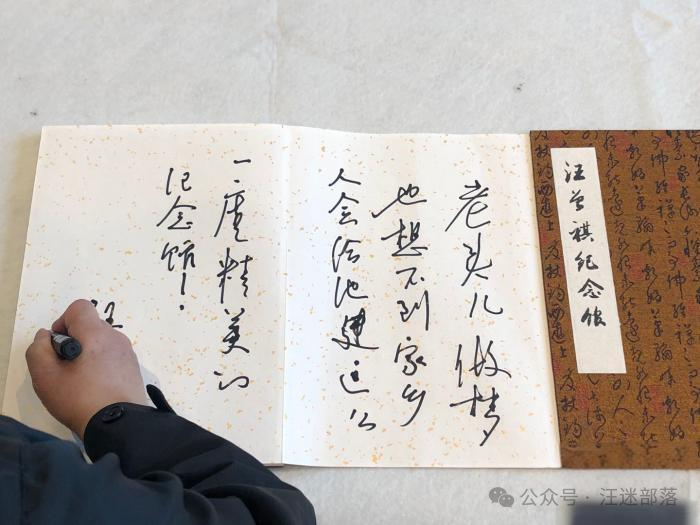 汪曾祺纪念馆
老头儿做梦
也想不到家乡
人会给他建这么
一座精美的
纪念馆！
公众号·汪迷部落